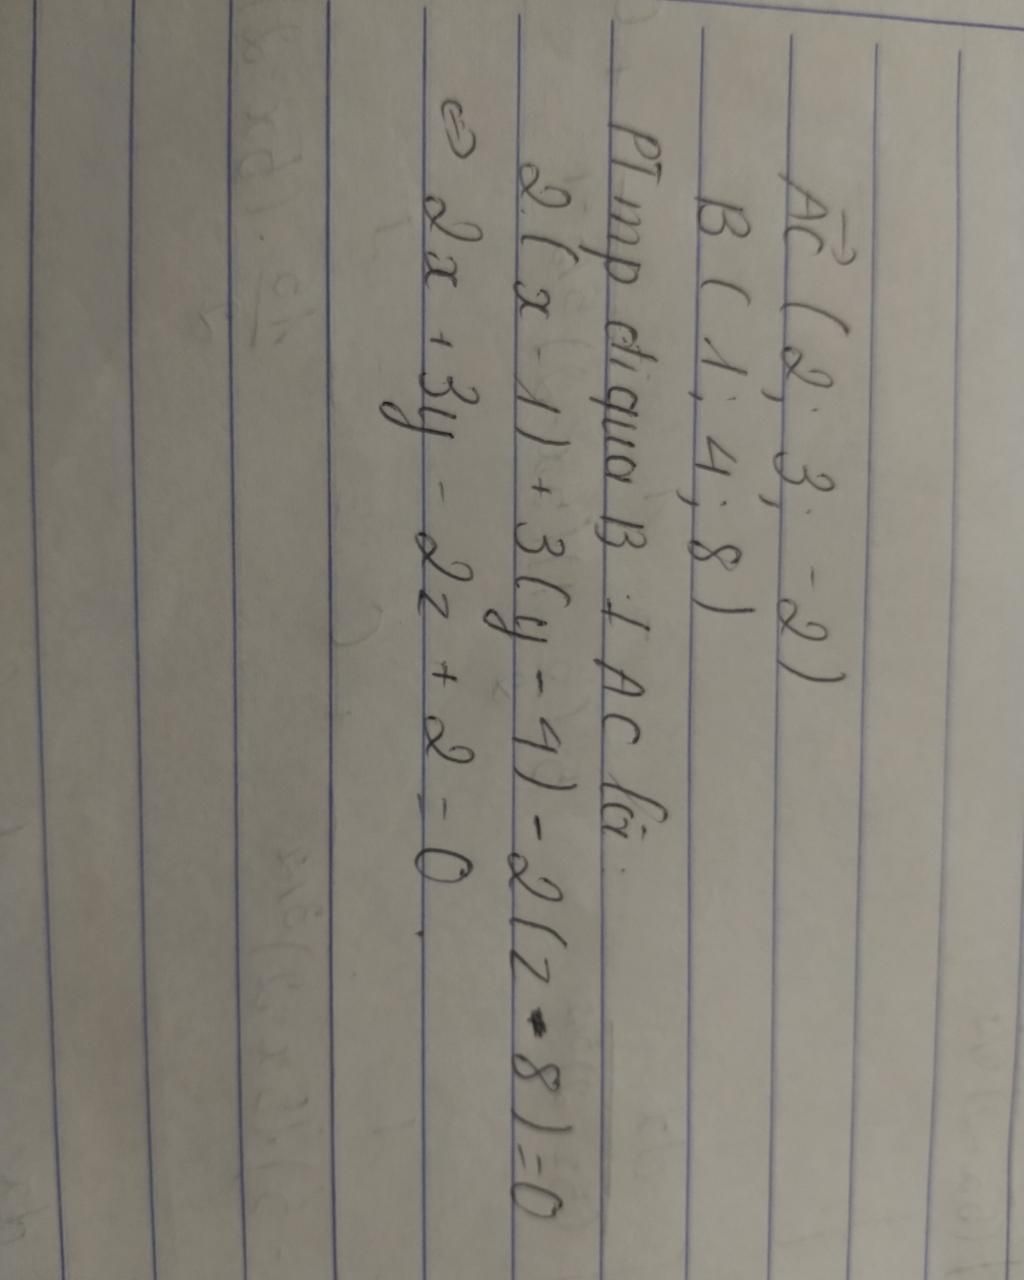 AC⃗ (2; 3; -2)
B (1; 4; 8)
PT mp đi qua B ⊥ AC là:
2.(x-1)+3(y-4)-2(z-8)=0
⇔ 2x+3y-2z+2=0.